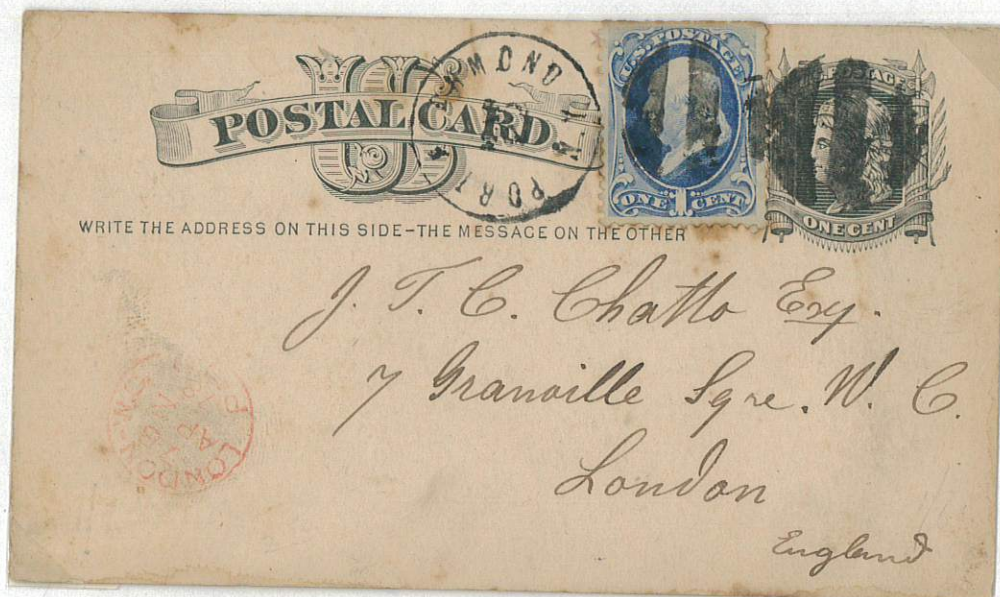 US
POSTAL CARD.
U.S. POSTAGE
ONE 1 CENT
POSTAGE
ONE CENT
PORT RICHMOND
N.Y.
WRITE THE ADDRESS ON THIS SIDE–THE MESSAGE ON THE OTHER
J. T. C. Chatto Esq.
7 Granville Sqre. W. C.
London
England
LONDON
AP
PAID